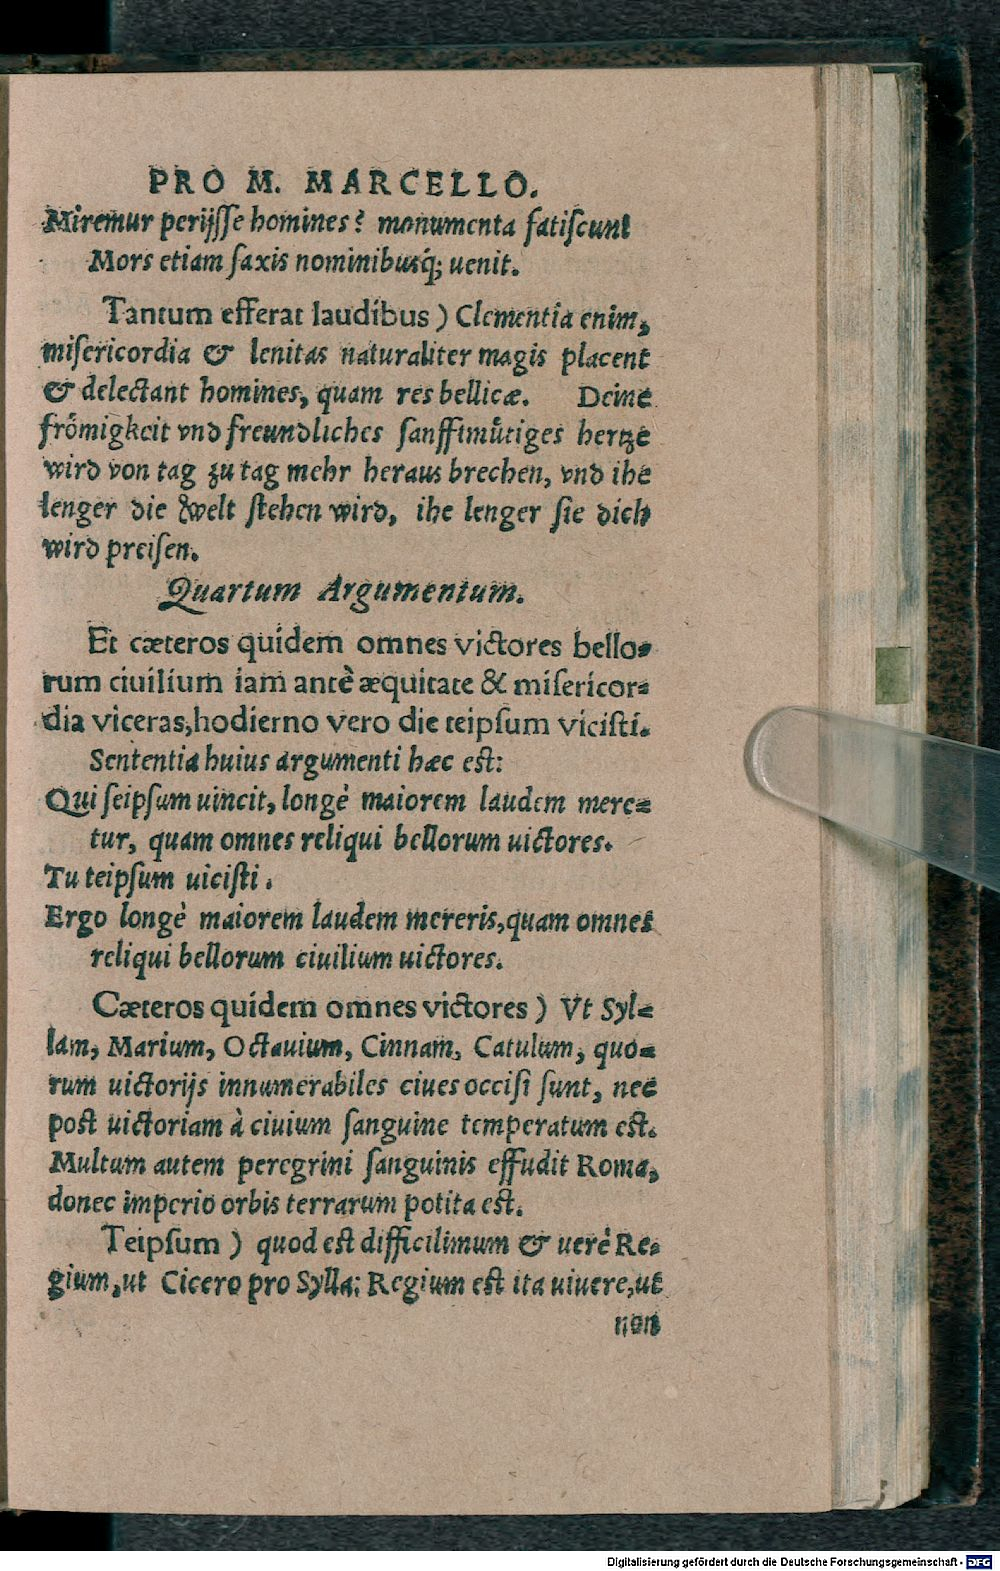 PRO M. MARCELLO.
Miremur perijsse homines? monumenta fatiscunt
Mors etiam saxis nominibusq́; uenit.
Tantum efferat laudibus) Clementia enim,
misericordia & lenitas naturaliter magis placent
& delectant homines, quam res bellicæ. Deine
frömigkeit vnd freundliches sanfftmütiges hertze
wird von tag zu tag mehr heraus brechen, vnd ihe
lenger die welt stehen wird, ihe lenger sie dich
wird preisen.
Quartum Argumentum.
Et cæteros quidem omnes victores bello-
rum ciuilium iam antè æquitate & misericor-
dia viceras, hodierno vero die teipsum vicisti.
Sententia huius argumenti hæc est:
Qui seipsum uincit, longè maiorem laudem mere-
tur, quam omnes reliqui bellorum uictores.
Tu teipsum uicisti.
Ergo longè maiorem laudem mereris, quam omnes
reliqui bellorum ciuilium uictores.
Cæteros quidem omnes victores) Vt Syl-
lam, Marium, Octauium, Cinnam, Catulum, quo-
rum uictorijs innumerabiles ciues occisi sunt, nec
post uictoriam à ciuium sanguine temperatum est.
Multum autem peregrini sanguinis effudit Roma,
donec imperio orbis terrarum potita est.
Teipsum) quod est difficilimum & uerè Re-
gium, ut Cicero pro Sylla: Regium est ita uiuere, ut
non
Digitalisierung gefördert durch die Deutsche Forschungsgemeinschaft - DFG